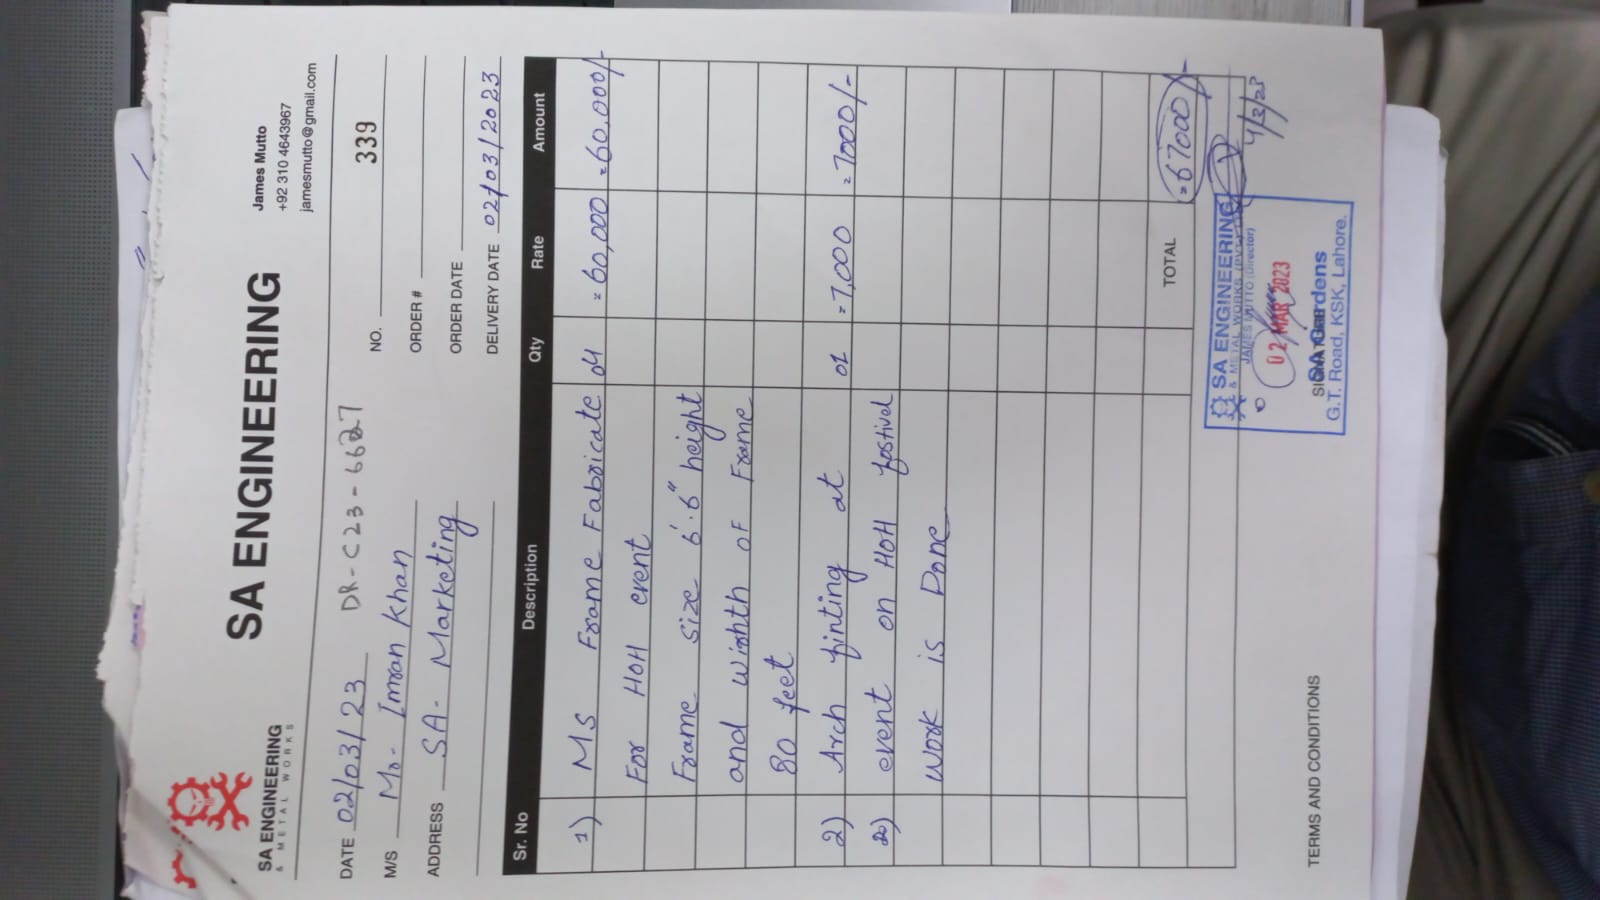 SA ENGINEERING
& METAL WORKS
SA ENGINEERING
James Mutto
+92 310 4643967
jamesmutto@gmail.com
DATE 02/03/23 DR-C23-6627
NO. 339
M/S Mr. Imran Khan
ORDER #
ADDRESS SA- Marketing
ORDER DATE
DELIVERY DATE 02/03/2023
Sr. No Description Qty Rate Amount
1) MS Frame Fabricate 04 =60,000 =60,000/-
For HOH event
Frame size 6'.6" height
and wishth OF Frame
80 feet
2) Arch finting at 01 =7,000 =7000/-
event on HOH fostivel
work is Done
TOTAL =67000/-
SA ENGINEERING
& METAL WORKS (PVT)
JAMES MUTTO (Director)
4/3/23
02 MAR 2023
TERMS AND CONDITIONS
SIGNATURE
SA Gardens
G.T. Road, KSK, Lahore.